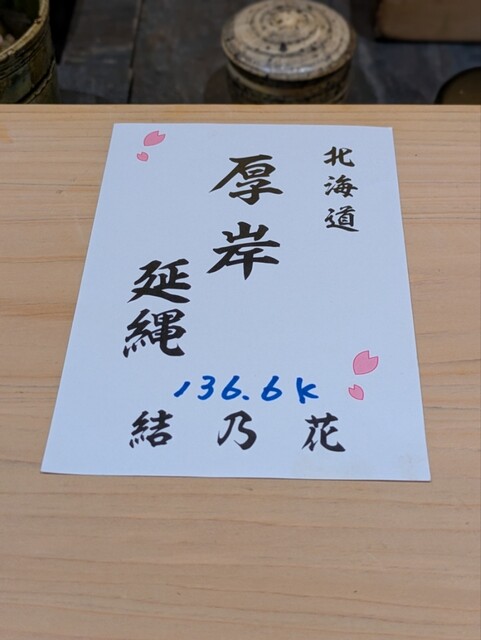 北海道
厚岸
延縄
136.6K
結乃花